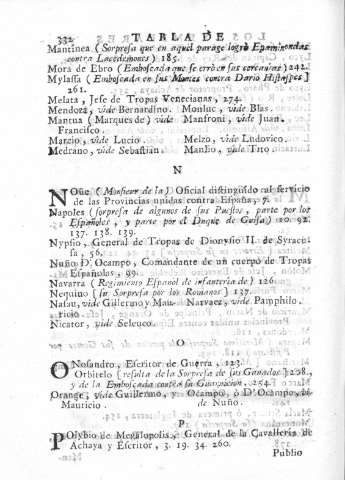 332 TABLA DE
Mantinea (Sorpresa que en aquel parage logró Epaminondas
contra Lacedemones) 185.
Mora de Ebro (Emboscada que se erró en sus cercanías) 242.
Mylassa (Emboscada en sus Montes contra Dario Histaspes)
261.
Melata, Jefe de Tropas Venecianas, 274.
Mendoza, vide Bernardino. Monluc, vide Blas.
Mantua (Marques de) vide Manfroni, vide Juan
Francisco.
Marcio, vide Lucio. Melzo, vide Ludovico.
Medrano, vide Sebastian. Manlio, vide Tito.
N
NOüe (Monsieur de la) Oficial distinguido al servicio
de las Provincias unidas contra España, 7.
Napoles (sorpresa de algunos de sus Puestos, parte por los
Españoles, y parte por el Duque de Guisa) 10. 92.
137. 138. 139.
Nypsio, General de Tropas de Dionysio II. de Syracu-
sa, 56.
Nuño D'. Ocampo, Comandante de un cuerpo de Tropas
Españolas, 99.
Navarra (Regimiento Español de infantería de) 126.
Nequino (su Sorpresa por los Romanos) 137.
Nasau, vide Gillermo y Mau- Narvaez, vide Pamphilo.
ricio
Nicator, vide Seleuco.
O
ONosandro, Escritor de Guerra, 123.
Orbitelo (resulta de la Sorpresa de sus Ganados) 228.,
y de la Emboscada contra su Guarnicion, 254.
Orange, vide Guillermo, y Ocampo, ó D'. Ocampo, vi-
Mauricio. de Nuño.
P
POlybio de Megalopolis, General de la Cavalleria de
Achaya y Escritor, 3. 19. 34. 260.
Publio